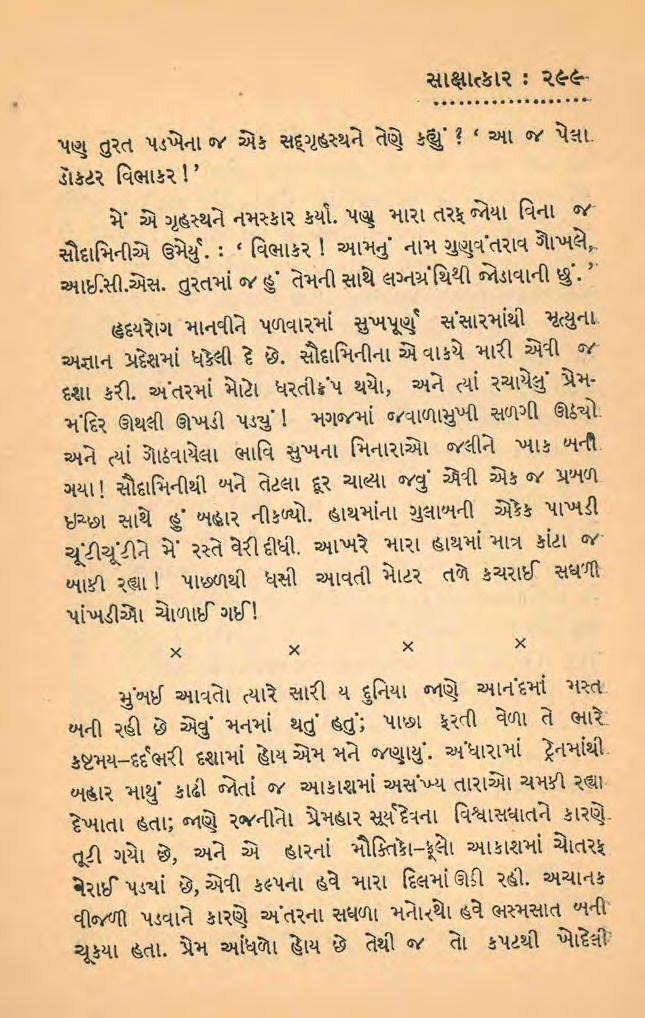 સાક્ષાત્કાર : ૨૯૯
પણ તુરત પડખેના જ એક સદ્ગૃહસ્થને તેણે કહ્યું ? ‘ આ જ પેલા
ડૉક્ટર વિભાકર !’
મેં એ ગૃહસ્થને નમસ્કાર કર્યા. પણ મારા તરફ જોયા વિના જ
સૌદામિનીએ ઉમેર્યું. : ‘ વિભાકર ! આમનું નામ ગુણવંતરાવ ગોખલે,
આઈ.સી.એસ. તુરતમાં જ હું તેમની સાથે લગ્નગ્રંથિથી જોડાવાની છું.’
હૃદયરોગ માનવીને પળવારમાં સુખપૂર્ણ સંસારમાંથી મૃત્યુના
અજ્ઞાન પ્રદેશમાં ધકેલી દે છે. સૌદામિનીના એ વાક્યે મારી એવી જ
દશા કરી. અંતરમાં મોટો ધરતીકંપ થયો, અને ત્યાં રચાયેલું પ્રેમ-
મંદિર ઊથલી ઊખડી પડયું ! મગજમાં જવાળામુખી સળગી ઊઠચો
અને ત્યાં ગોઠવાયેલા ભાવિ સુખના મિનારાઓ જલીને ખાક બની
ગયા! સૌદામિનીથી બને તેટલા દૂર ચાલ્યા જવું એવી એક જ પ્રબળ
ઇચ્છા સાથે હું બહાર નીકળ્યો. હાથમાંના ગુલાબની એકેક પાખડી
ચૂંટીચૂંટીને મેં રસ્તે વેરી દીધી. આખરે મારા હાથમાં માત્ર કાંટા જ
બાકી રહ્યા ! પાછળથી ધસી આવતી મોટર તળે કચરાઈ સઘળી
પાંખડીઓ ચોળાઈ ગઈ!
× × × ×
મુંબઈ આવતો ત્યારે સારી ય દુનિયા જાણે આનંદમાં મસ્ત
બની રહી છે એવું મનમાં થતું હતું; પાછા ફરતી વેળા તે ભારે
કષ્ટમય–દર્દભરી દશામાં હોય એમ મને જણાયું. અંધારામાં ટ્રેનમાંથી
બહાર માથું કાઢી જોતાં જ આકાશમાં અસંખ્ય તારાઓ ચમકી રહ્યા
દેખાતા હતા; જાણે રજનીનો પ્રેમહાર સૂર્યદેવના વિશ્વાસઘાતને કારણે
તૂટી ગયો છે, અને એ હારનાં મૌક્તિકો–ફૂલો આકાશમાં ચોતરફ
વેરાઈ પડયાં છે, એવી કલ્પના હવે મારા દિલમાં ઊડી રહી. અચાનક
વીજળી પડવાને કારણે અંતરના સઘળા મનોરથો હવે ભસ્મસાત બની
ચૂકયા હતા. પ્રેમ આંધળો હોય છે તેથી જ તો કપટથી ખોદેલી